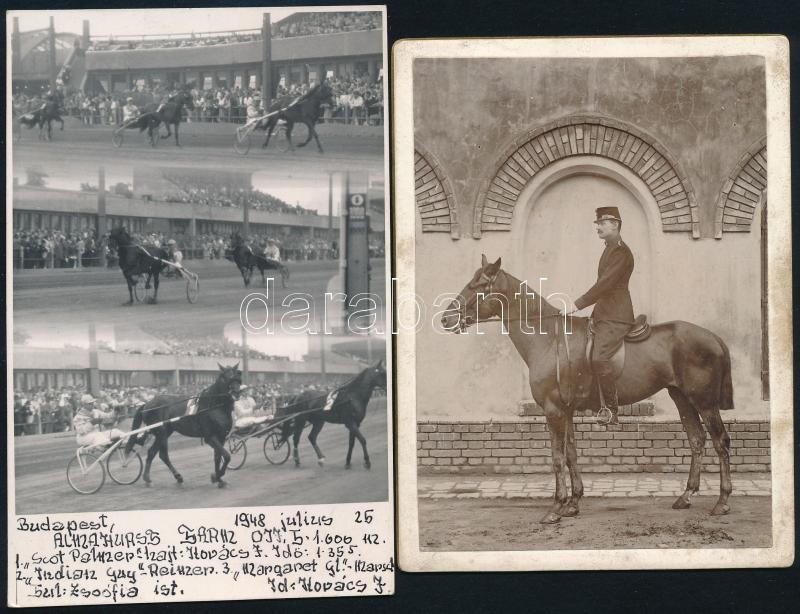 darabanth.com
Budapest, 1948 július 25
ALMAHURST FARM OTT. I: 1.600 m.
1. "Scot Palmer" hajt: Kovács F. Idö: 1:35.5.
2. "Indian Guy" - Reinzer. 3. "Margaret Gl" -
Zsoófia ist. Id: Kovács F